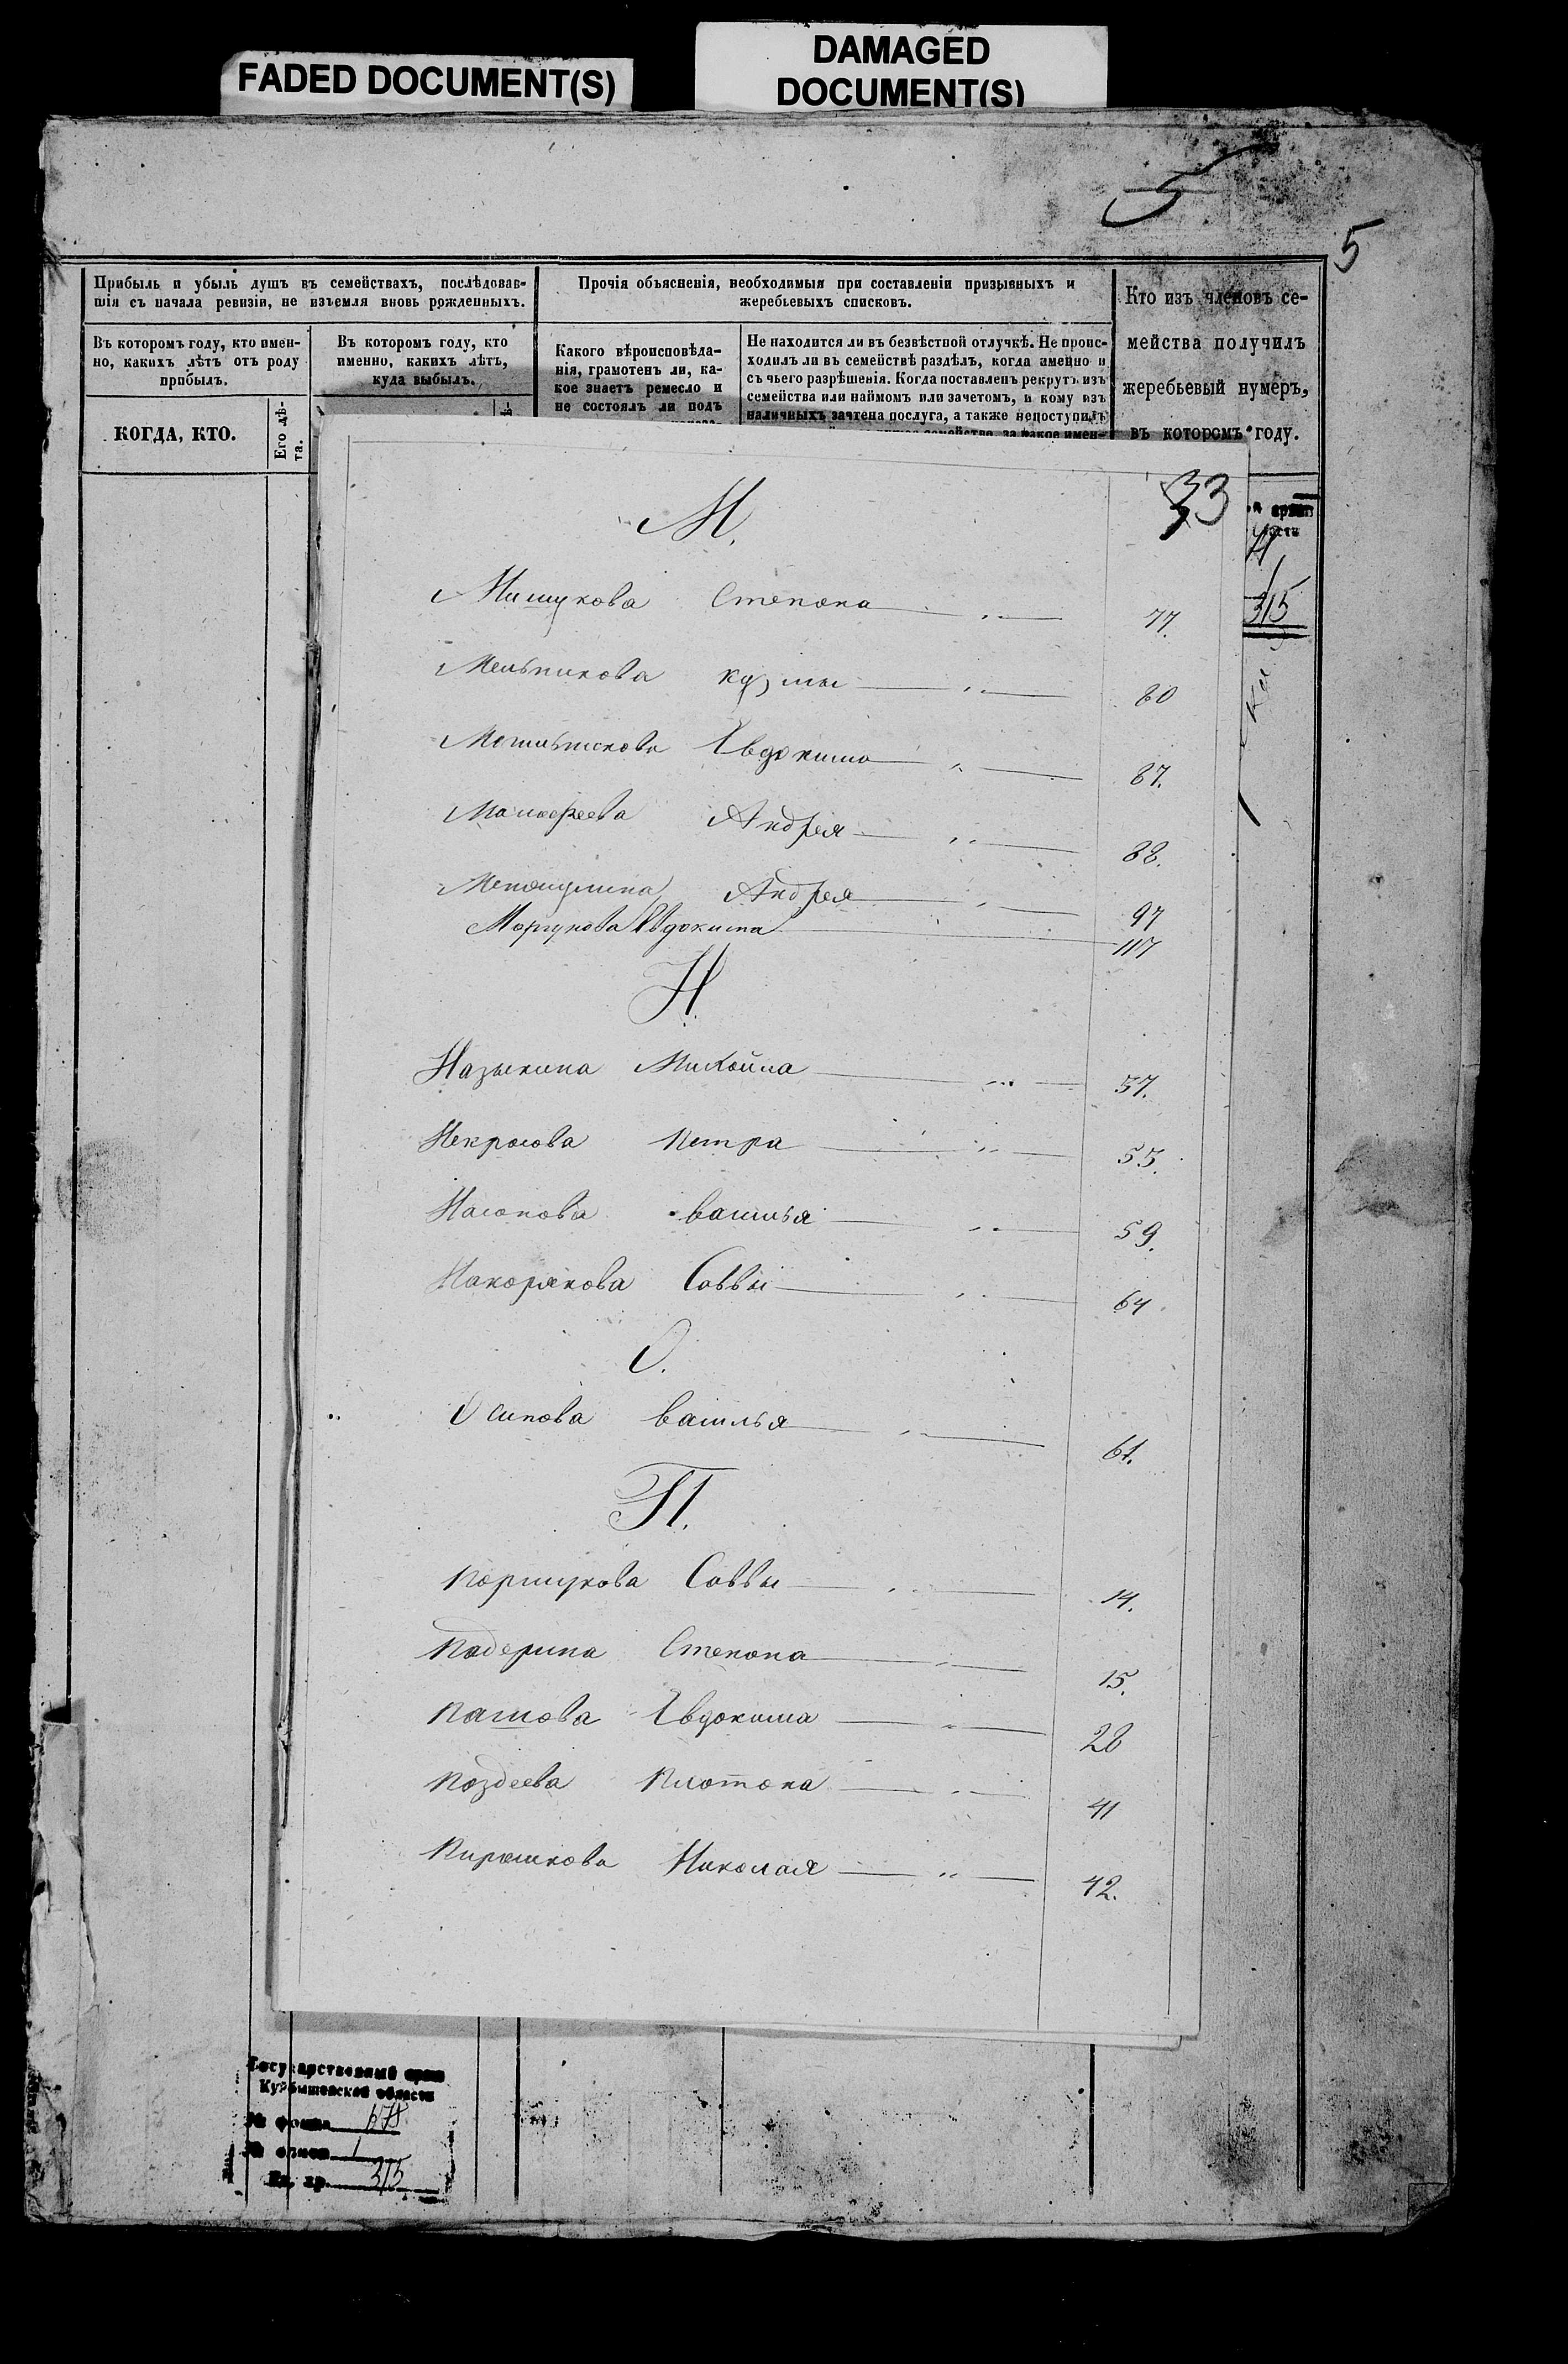 FADED DOCUMENT(S)
DAMAGED
DOCUMENT(S)
5
5
Прибыль и убыль душъ въ семействахъ, послѣдовав-
шія съ начала ревизіи, не изъемля вновь рожденныхъ.
Прочія объясненія, необходимыя при составленіи призывныхъ и
жеребьевыхъ списковъ.
Кто изъ членовъ се-
мейства получилъ
жеребьевый нумеръ,
въ которомъ году.
Въ которомъ году, кто имен-
но, какихъ лѣтъ отъ роду
прибылъ.
Въ которомъ году, кто
именно, какихъ лѣтъ,
куда выбылъ.
Какого вѣроисповѣда-
нія, грамотенъ ли, ка-
кое знаетъ ремесло и
не состоялъ ли подъ
Не находится ли въ безвѣстной отлучкѣ. Не проис-
ходилъ ли въ семействѣ раздѣлъ, когда именно и
съ чьего разрѣшенія. Когда поставленъ рекрутъ изъ
семейства или наймомъ или зачетомъ, и кому изъ
наличныхъ зачтена послуга, а также непоступилъ
семейство, за какое имен-
КОГДА, КТО.
Его лѣ-
та.
33
М.
Мишукова Степана 77.
Мельникова Кузмы 80
Мотинникова Евдокима 87.
Малафеева Андрея 88.
Андрея 97
Моргунова Евдокима 117
Н.
Назыкина Михайла 57.
Некрасова Петра 55.
Насонова Василья 59.
Накорякова Саввы 64.
О.
Осипова Василья 61.
П.
Поршукова Саввы 14.
Падерина Степана 15.
Пашова Евдокима 28
Поздеева Платона 41
Пирашкова Николая 42.
315
Государственный архив
Куйбышевской области
№ фонда 678
№ описи 1
Ед. хр. 315